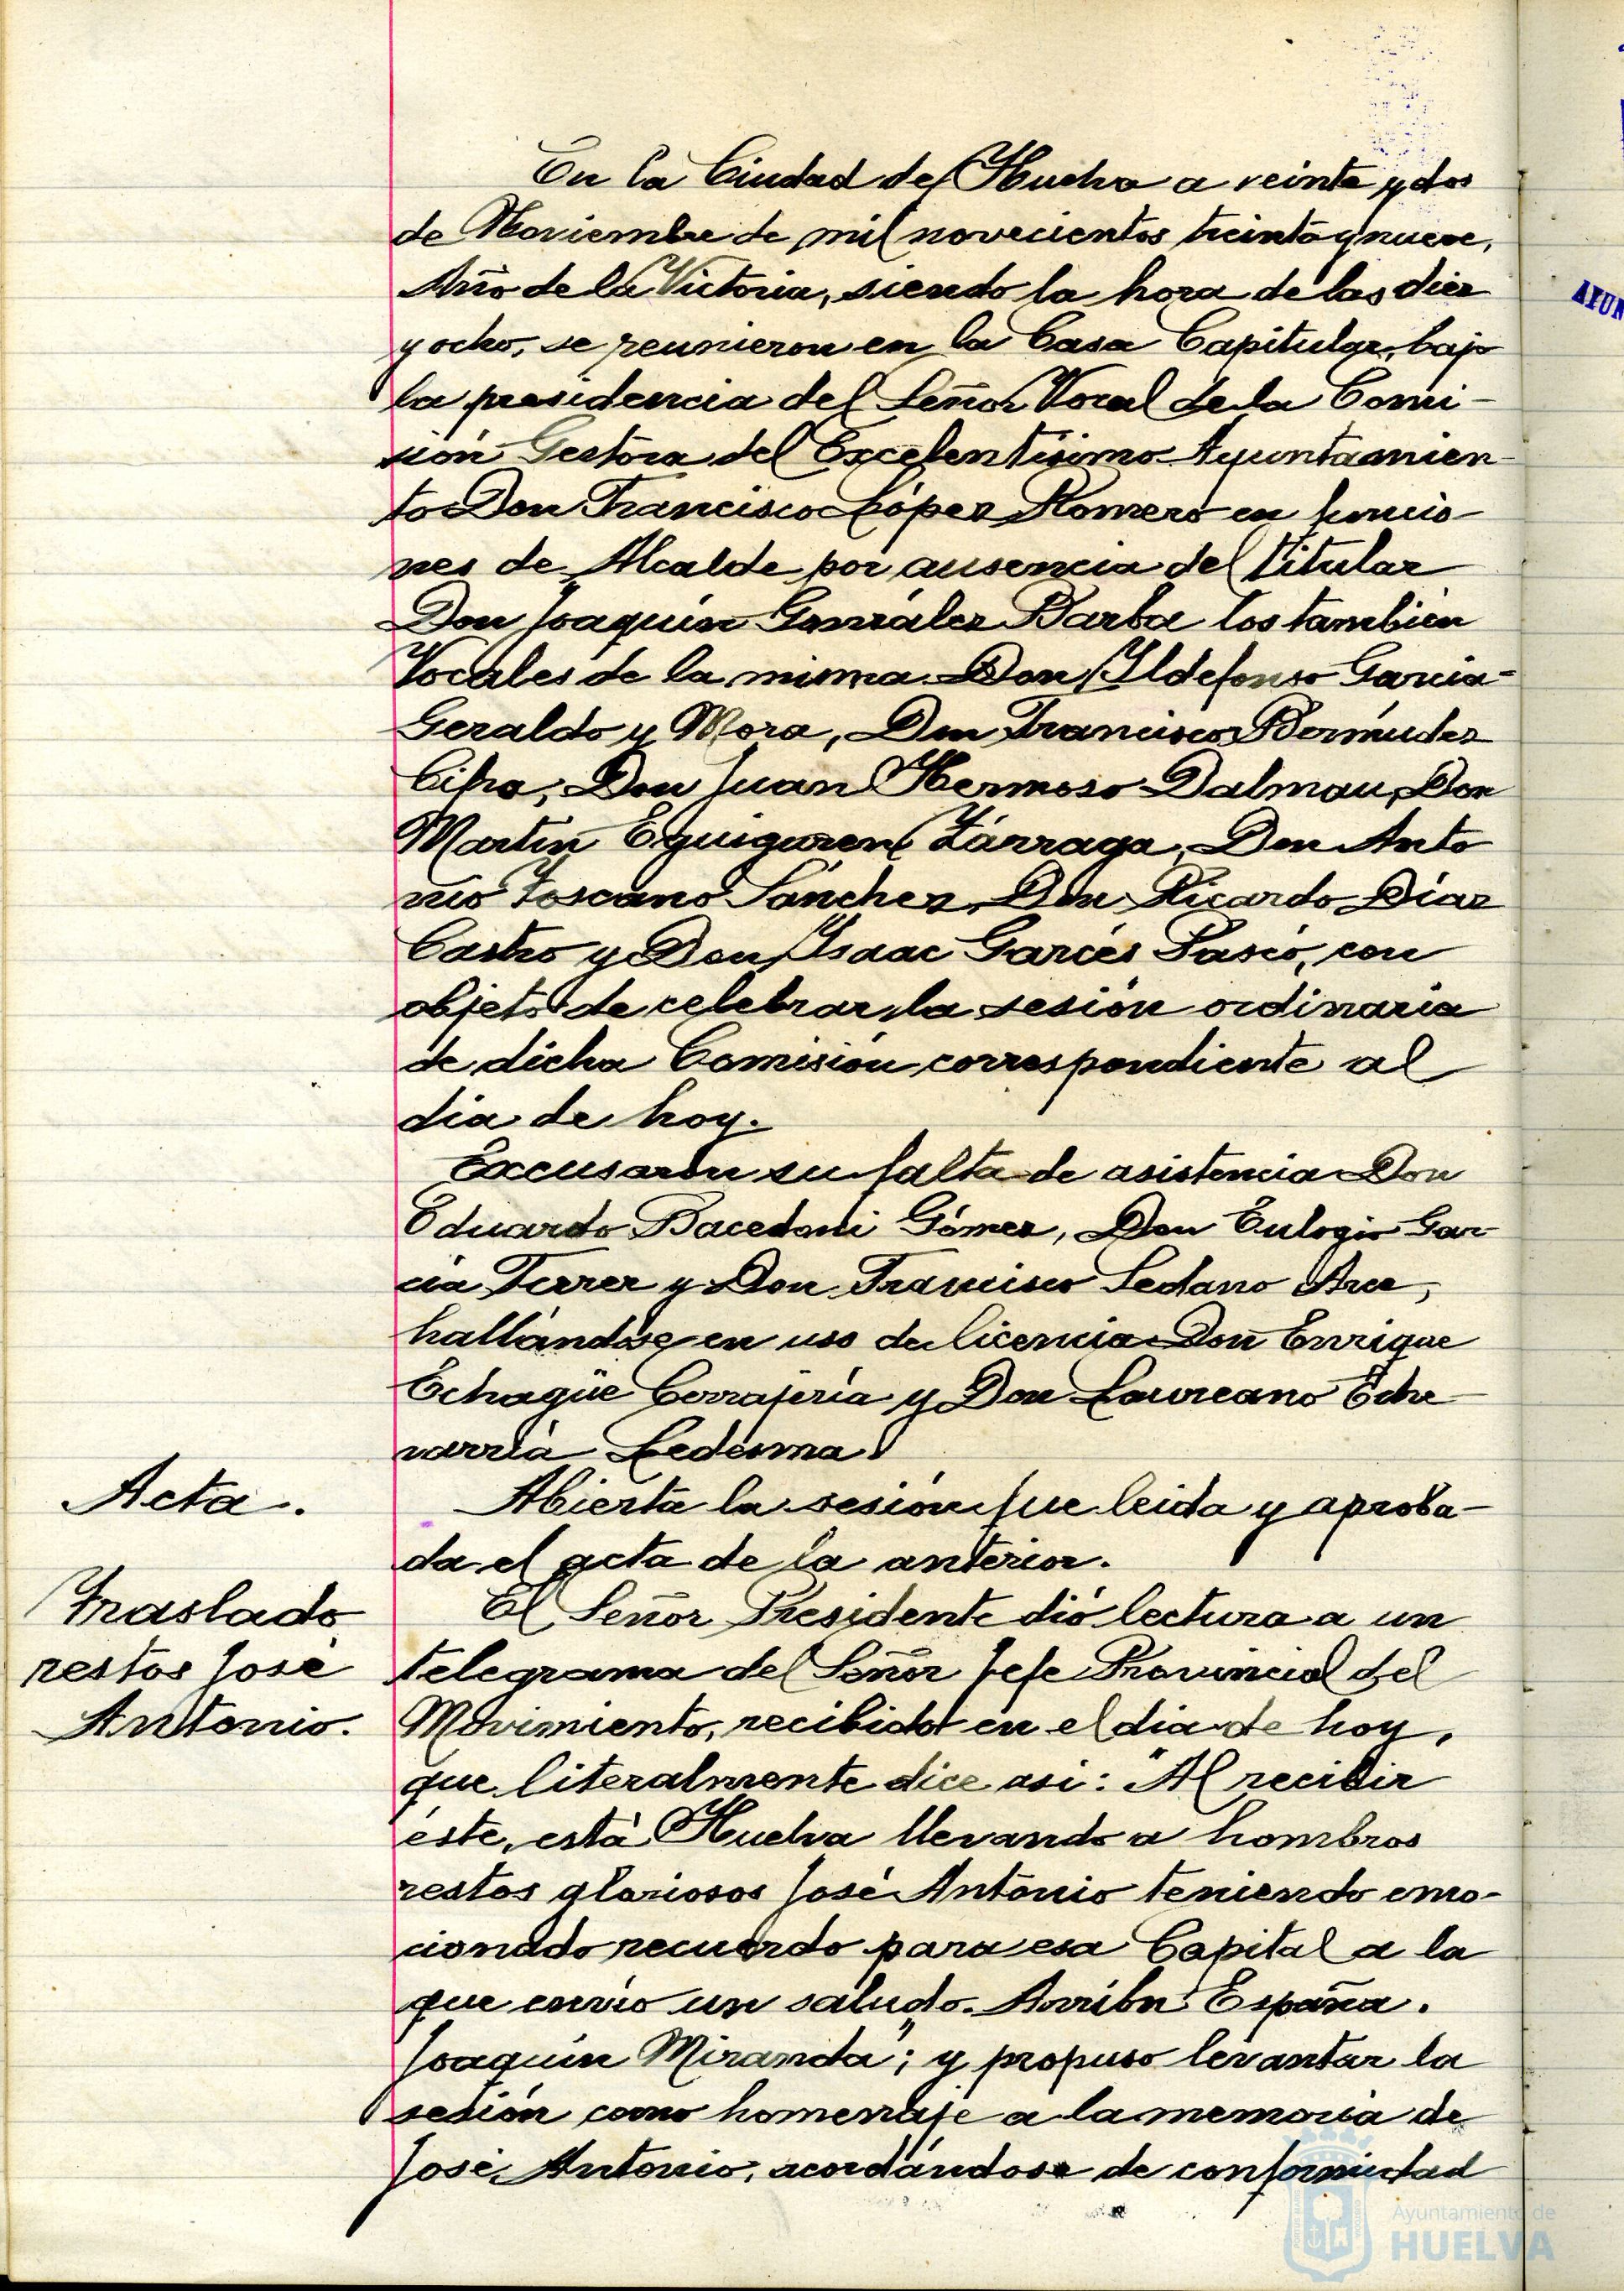 En la Ciudad de Huelva a veinte y dos
de Noviembre de mil novecientos treinta y nueve,
Año de la Victoria, siendo la hora de las diez
y ocho, se reunieron en la Casa Capitular, bajo
la presidencia del Señor Vocal de la Comi-
sión Gestora del Excelentísimo Ayuntamien-
to Don Francisco López Romero en funcio-
nes de Alcalde por ausencia del titular
Don Joaquín González Barba los también
Vocales de la misma Don Ildefonso García-
Geraldo y Mora, Don Francisco Bermúdez
Cifra, Don Juan Hermoso Dalmau, Don
Martín Eguiguren Zárraga, Don Anto
nio Toscano Sánchez, Don Ricardo Díaz
Castro y Don Isaac Garcés Pasco, con
objeto de celebrar la sesión ordinaria
de dicha Comisión correspondiente al
dia de hoy.
Excusaron su falta de asistencia Don
Eduardo Gómez, Don Eulogio Gar
cia Ferrer y Don Francisco Sedano Arce,
hallándose en uso de licencia Don Enrique
Echagüe Cerrajería y Don Laureano Eche
varría Ledesma.
Acta.
Abierta la sesión fue leida y aproba-
da el acta de la anterior.
Traslado
restos José
Antonio.
El Señor Presidente dió lectura a un
telegrama del Señor Jefe Provincial del
Movimiento, recibido en el dia de hoy,
que literalmente dice asi: "Al recibir
éste, está Huelva llevando a hombros
restos gloriosos José Antonio teniendo emo-
cionado recuerdo para esa Capital a la
que envío un saludo. Arriba España.
Joaquín Miranda"; y propuso levantar la
sesión como homenaje a la memoria de
José Antonio, acordándose de conformidad
AYUN
Ayuntamiento de
HUELVA